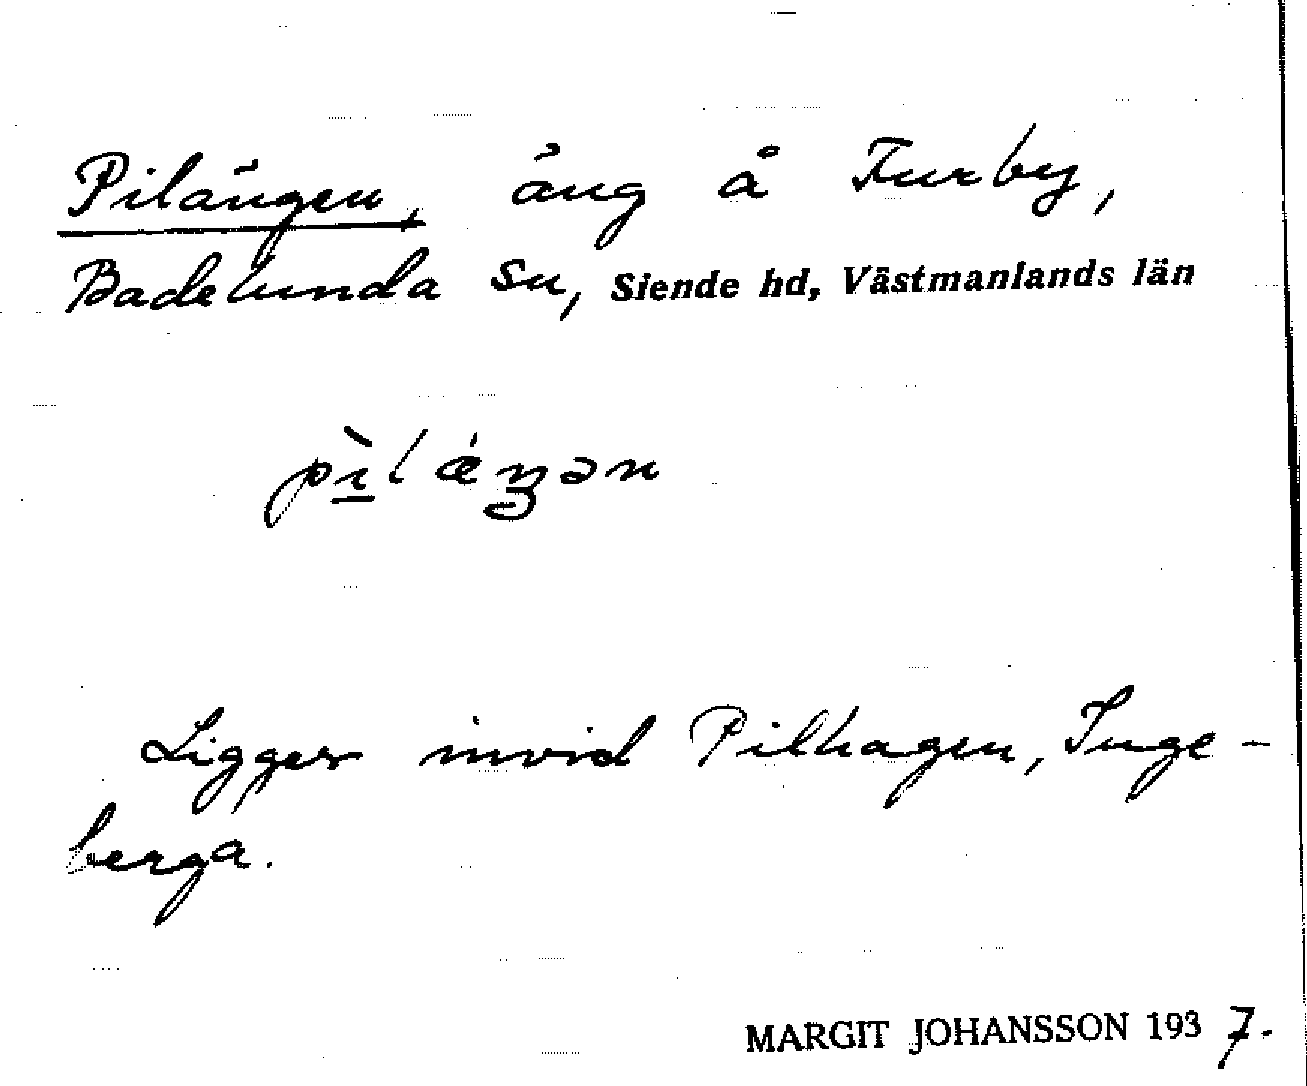 Pilängen, äng å Furby,
Badelunda sn, Siende hd, Västmanlands län
pìlǽŋən
Ligger invid Pilhagen, Inge-
berga.
MARGIT JOHANSSON 1937.